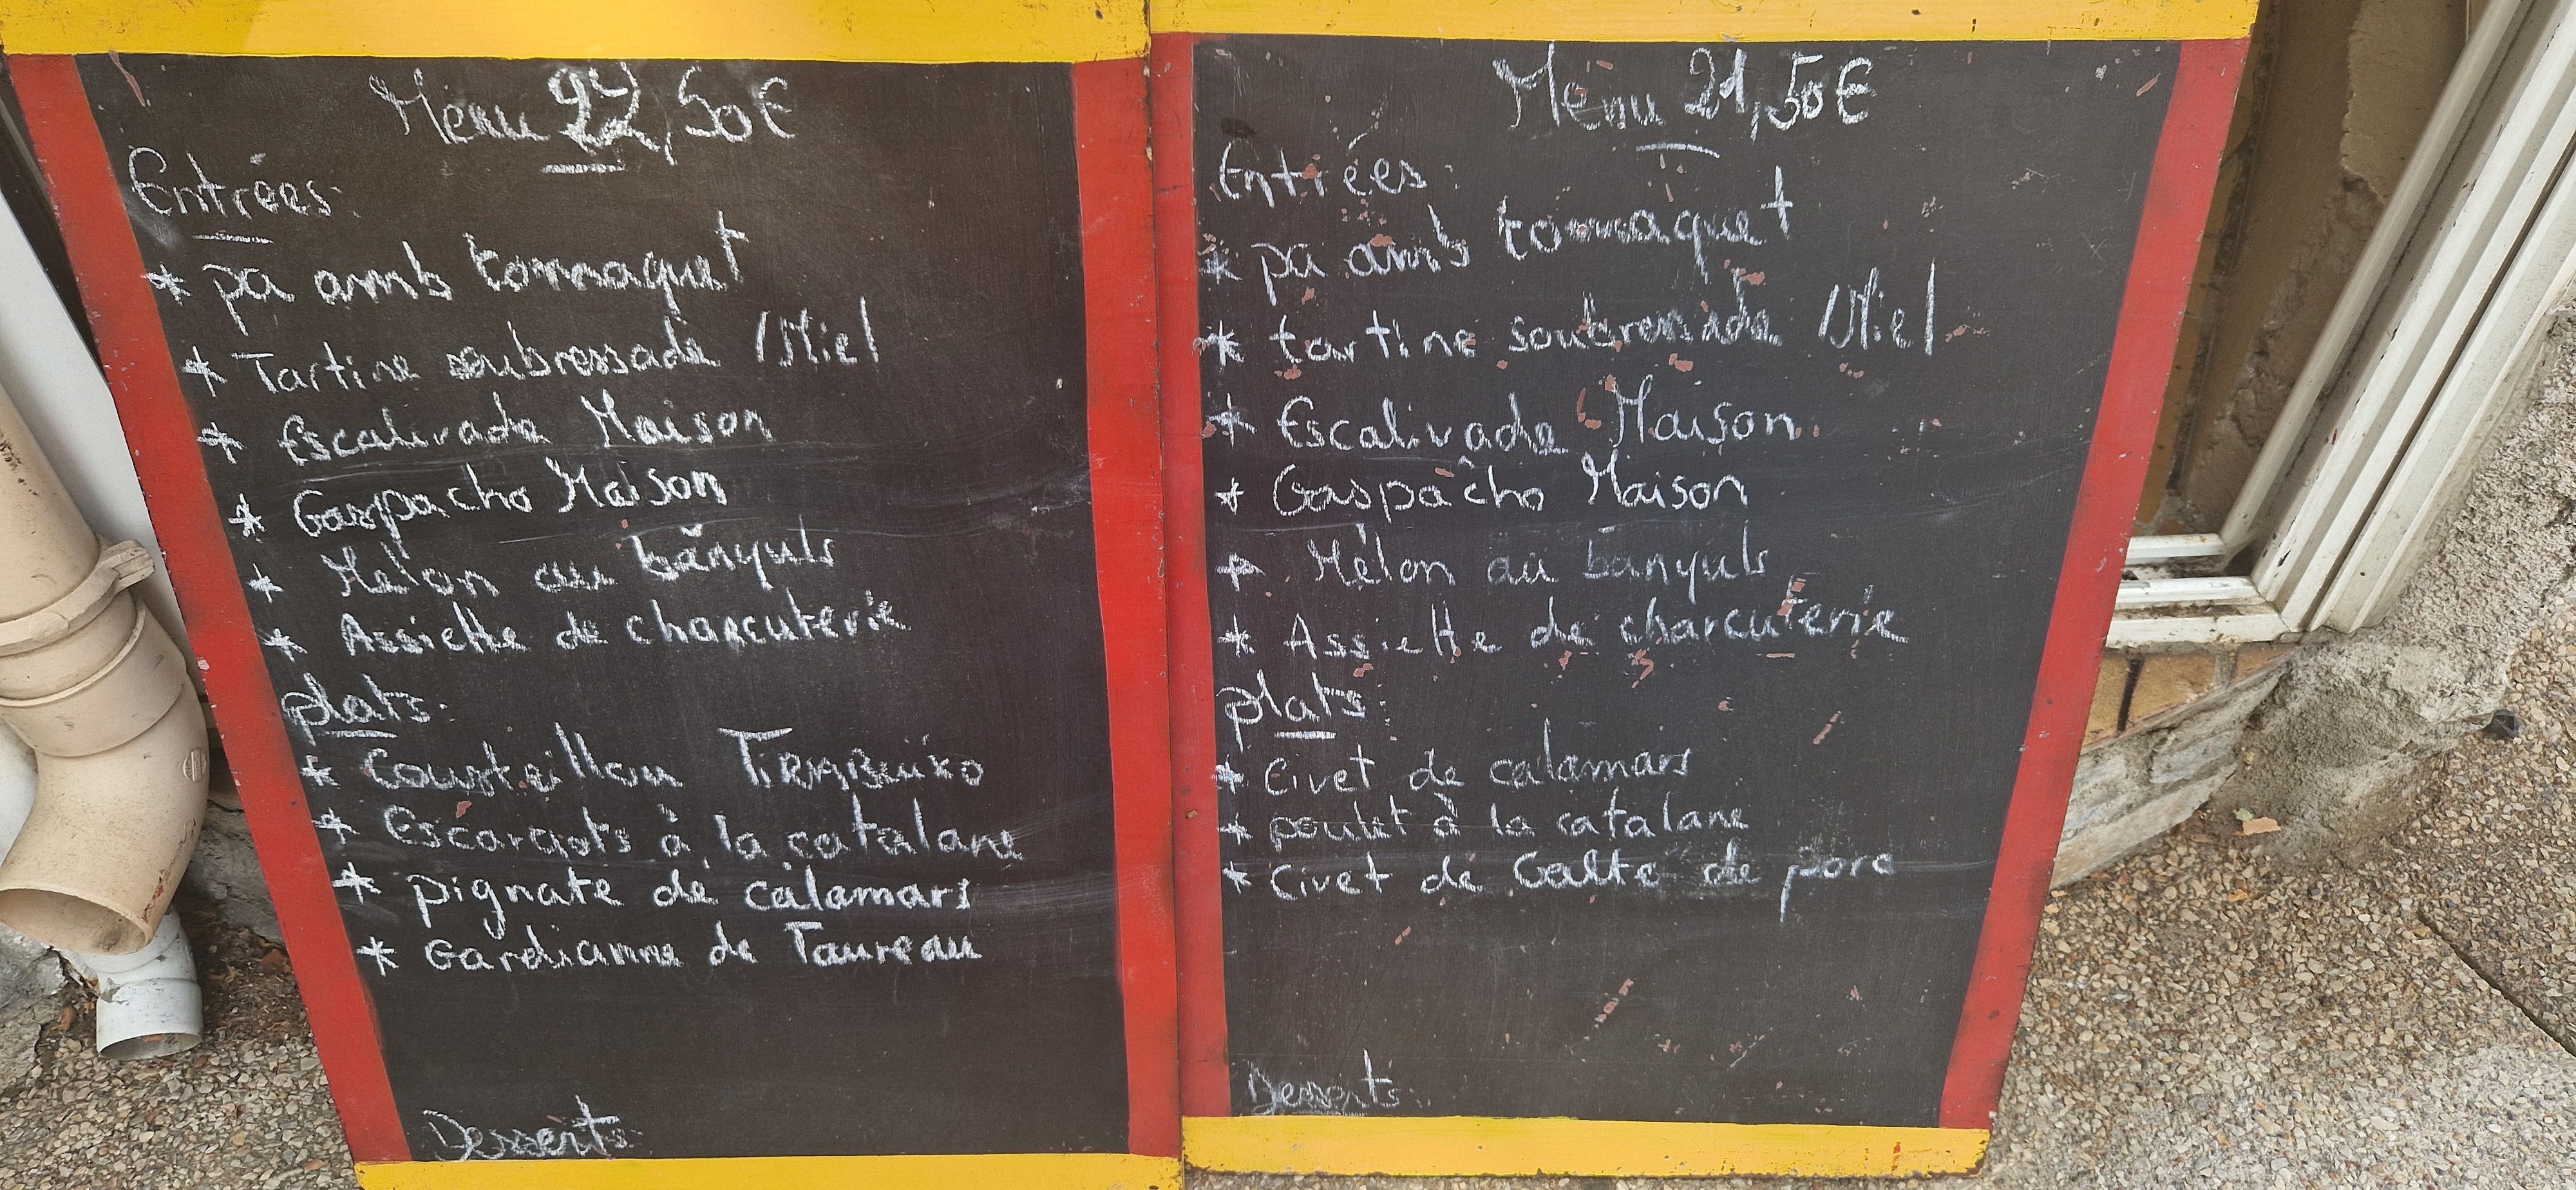 Menu 27,50€
Entrées:
* pa amb tomaquet
* Tartine soubressade / Miel
* Escalivade Maison
* Gaspacho Maison
* Melon au banyuls
* Assiette de charcuterie
plats:
* Cousteillou TIRABUIXO
* Escargots à la catalane
* pignate de calamars
* Gardianne de Taureau
Desserts
Menu 21,50€
Entrées:
* pa amb tomaquet
* tartine soubressade / Miel
* Escalivade Maison
* Gaspacho Maison
* Melon au banyuls
* Assiette de charcuterie
plats:
* Civet de calamars
* poulet à la catalane
* Civet de Galte de porc
Desserts